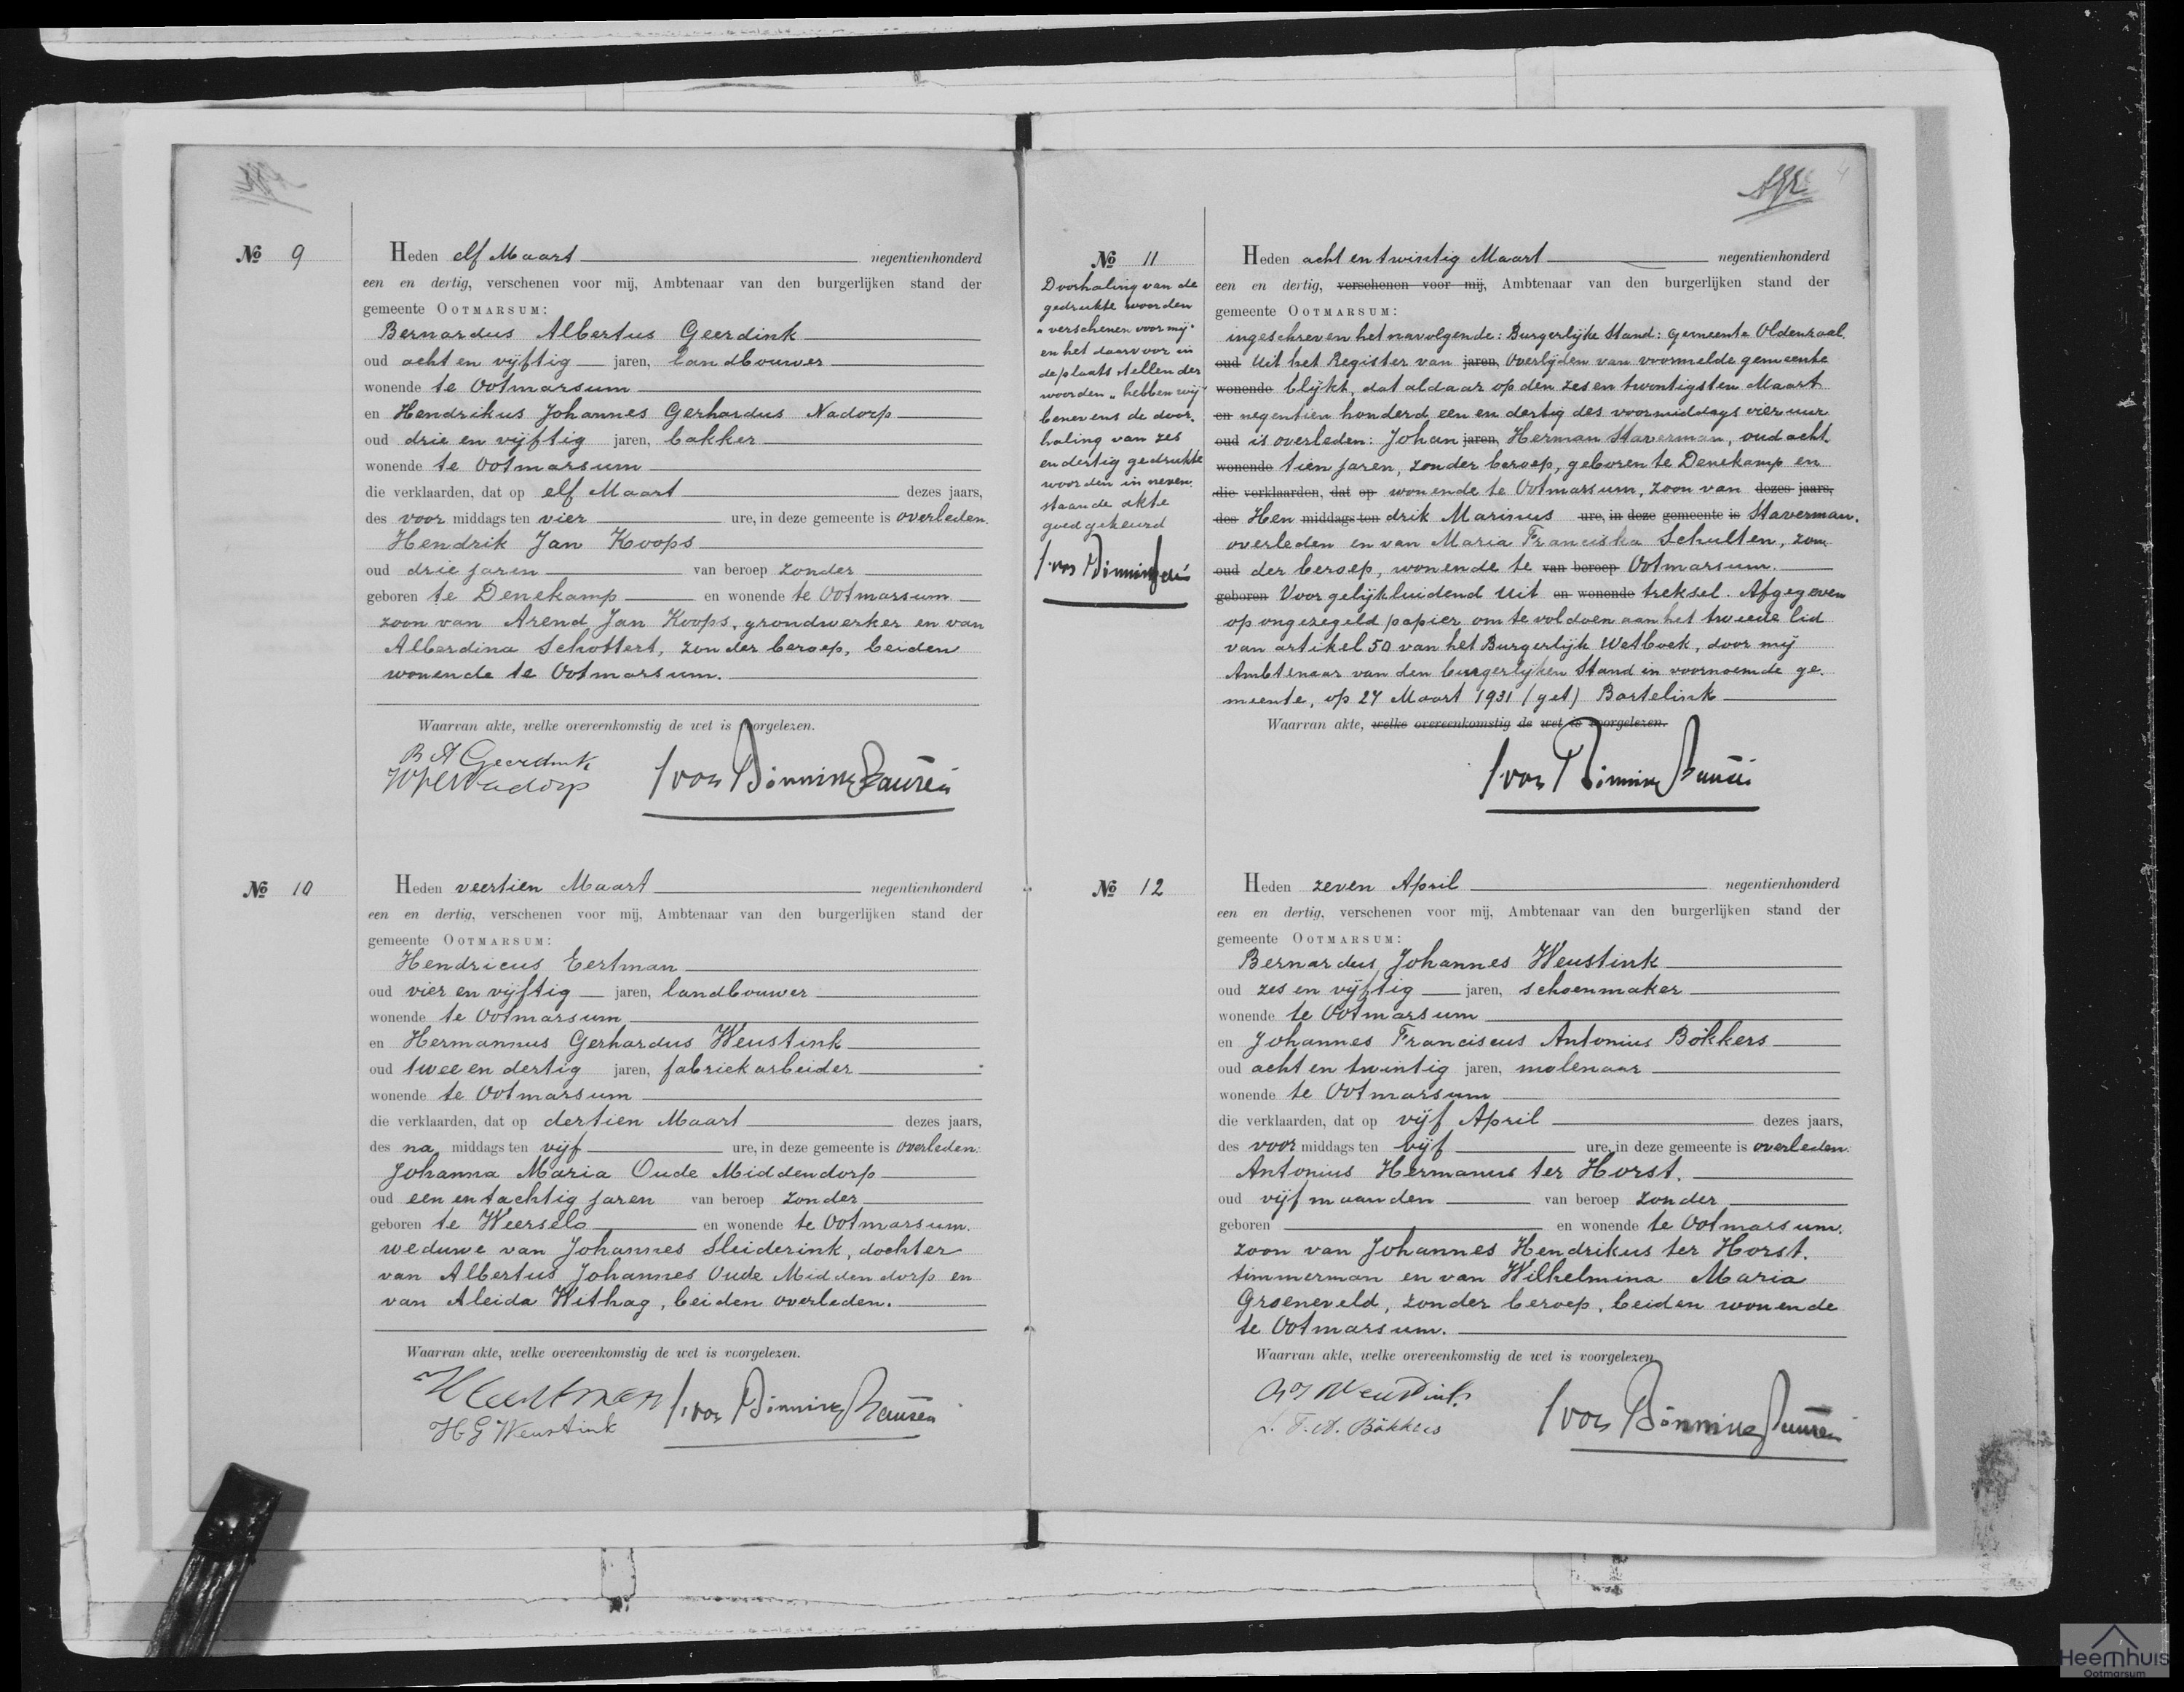 No 9
Heden elf Maart negentienhonderd
een en dertig, verschenen voor mij, Ambtenaar van den burgerlijken stand der
gemeente OOTMARSUM:
Bernardus Albertus Geerdink
oud acht en vijftig jaren, landbouwer
wonende te Ootmarsum
en Hendrikus Johannes Gerhardus Nadorp
oud drie en vijftig jaren, bakker
wonende te Ootmarsum
die verklaarden, dat op elf Maart dezes jaars,
des voor middags ten vier ure, in deze gemeente is overleden
Hendrik Jan Koops
oud drie jaren van beroep zonder
geboren te Denekamp en wonende te Ootmarsum
zoon van Arend Jan Koops, grondwerker en van
Alberdina Schottert, zonder beroep, beiden
wonende te Ootmarsum.
Waarvan akte, welke overeenkomstig de wet is voorgelezen.
B A Geerdink
Nadorp
von Bönninghausen
No 10
Heden veertien Maart negentienhonderd
een en dertig, verschenen voor mij, Ambtenaar van den burgerlijken stand der
gemeente OOTMARSUM:
Hendricus Eertman
oud vier en vijftig jaren, landbouwer
wonende te Ootmarsum
en Hermannus Gerhardus Weustink
oud twee en dertig jaren, fabriekarbeider
wonende te Ootmarsum
die verklaarden, dat op dertien Maart dezes jaars,
des na middags ten vijf ure, in deze gemeente is overleden.
Johanna Maria Oude Middendorp
oud een en tachtig jaren van beroep zonder
geboren te Weerselo en wonende te Ootmarsum.
weduwe van Johannes Sleiderink, dochter
van Albertus Johannes Oude Middendorp en
van Aleida Withag, beiden overleden.
Waarvan akte, welke overeenkomstig de wet is voorgelezen.
H Eertman
H G Weustink
von Bönninghausen
No 11
Doorhaling van de
gedrukte woorden
"verschenen voor mij"
en het daarvoor in
de plaats stellen der
woorden "hebben wij"
benevens de door-
haling van zes
en dertig gedrukte
woorden in neven-
staande akte
goedgekeurd
von Bönninghausen
Heden acht en twintig Maart negentienhonderd
een en dertig, verschenen voor mij, Ambtenaar van den burgerlijken stand der
gemeente OOTMARSUM:
ingeschreven het navolgende: Burgerlijke Stand: Gemeente Oldenzaal.
oud Uit het Register van jaren, Overlijden van voormelde gemeente
wonende blijkt, dat aldaar op den zes en twintigsten Maart
en negentien honderd een en dertig des voormiddags vier uur
oud is overleden: Johan jaren, Herman Staverman, oud acht-
wonende tien jaren, zonder beroep, geboren te Denekamp en
die verklaarden, dat op wonende te Ootmarsum, zoon van dezes jaars,
des Hen middags ten drik Marinus ure, in deze gemeente is Staverman.
overleden en van Maria Franciska Schulten, zon-
oud der beroep, wonende te van beroep Ootmarsum.
geboren Voor gelijkluidend uit en wonende treksel. Afgegeven
op ongezegeld papier om te voldoen aan het tweede lid
van artikel 50 van het Burgerlijk Wetboek, door mij
Ambtenaar van den burgerlijken Stand in voornoemde ge-
meente, op 27 Maart 1931 (get) Bartelink
Waarvan akte, welke overeenkomstig de wet is voorgelezen.
von Bönninghausen
No 12
Heden zeven April negentienhonderd
een en dertig, verschenen voor mij, Ambtenaar van den burgerlijken stand der
gemeente OOTMARSUM:
Bernardus Johannes Weustink
oud zes en vijftig jaren, schoenmaker
wonende te Ootmarsum
en Johannes Franciscus Antonius Bökkers
oud acht en twintig jaren, molenaar
wonende te Ootmarsum
die verklaarden, dat op vijf April dezes jaars,
des voor middags ten vijf ure, in deze gemeente is overleden.
Antonius Hermanus ter Horst.
oud vijf maanden van beroep zonder
geboren en wonende te Ootmarsum.
zoon van Johannes Hendrikus ter Horst.
timmerman en van Wilhelmina Maria
Groeneveld, zonder beroep, beiden wonende
te Ootmarsum.
Waarvan akte, welke overeenkomstig de wet is voorgelezen.
Weustink
J. F. A. Bökkers
von Bönninghausen
Heemhuis
Ootmarsum